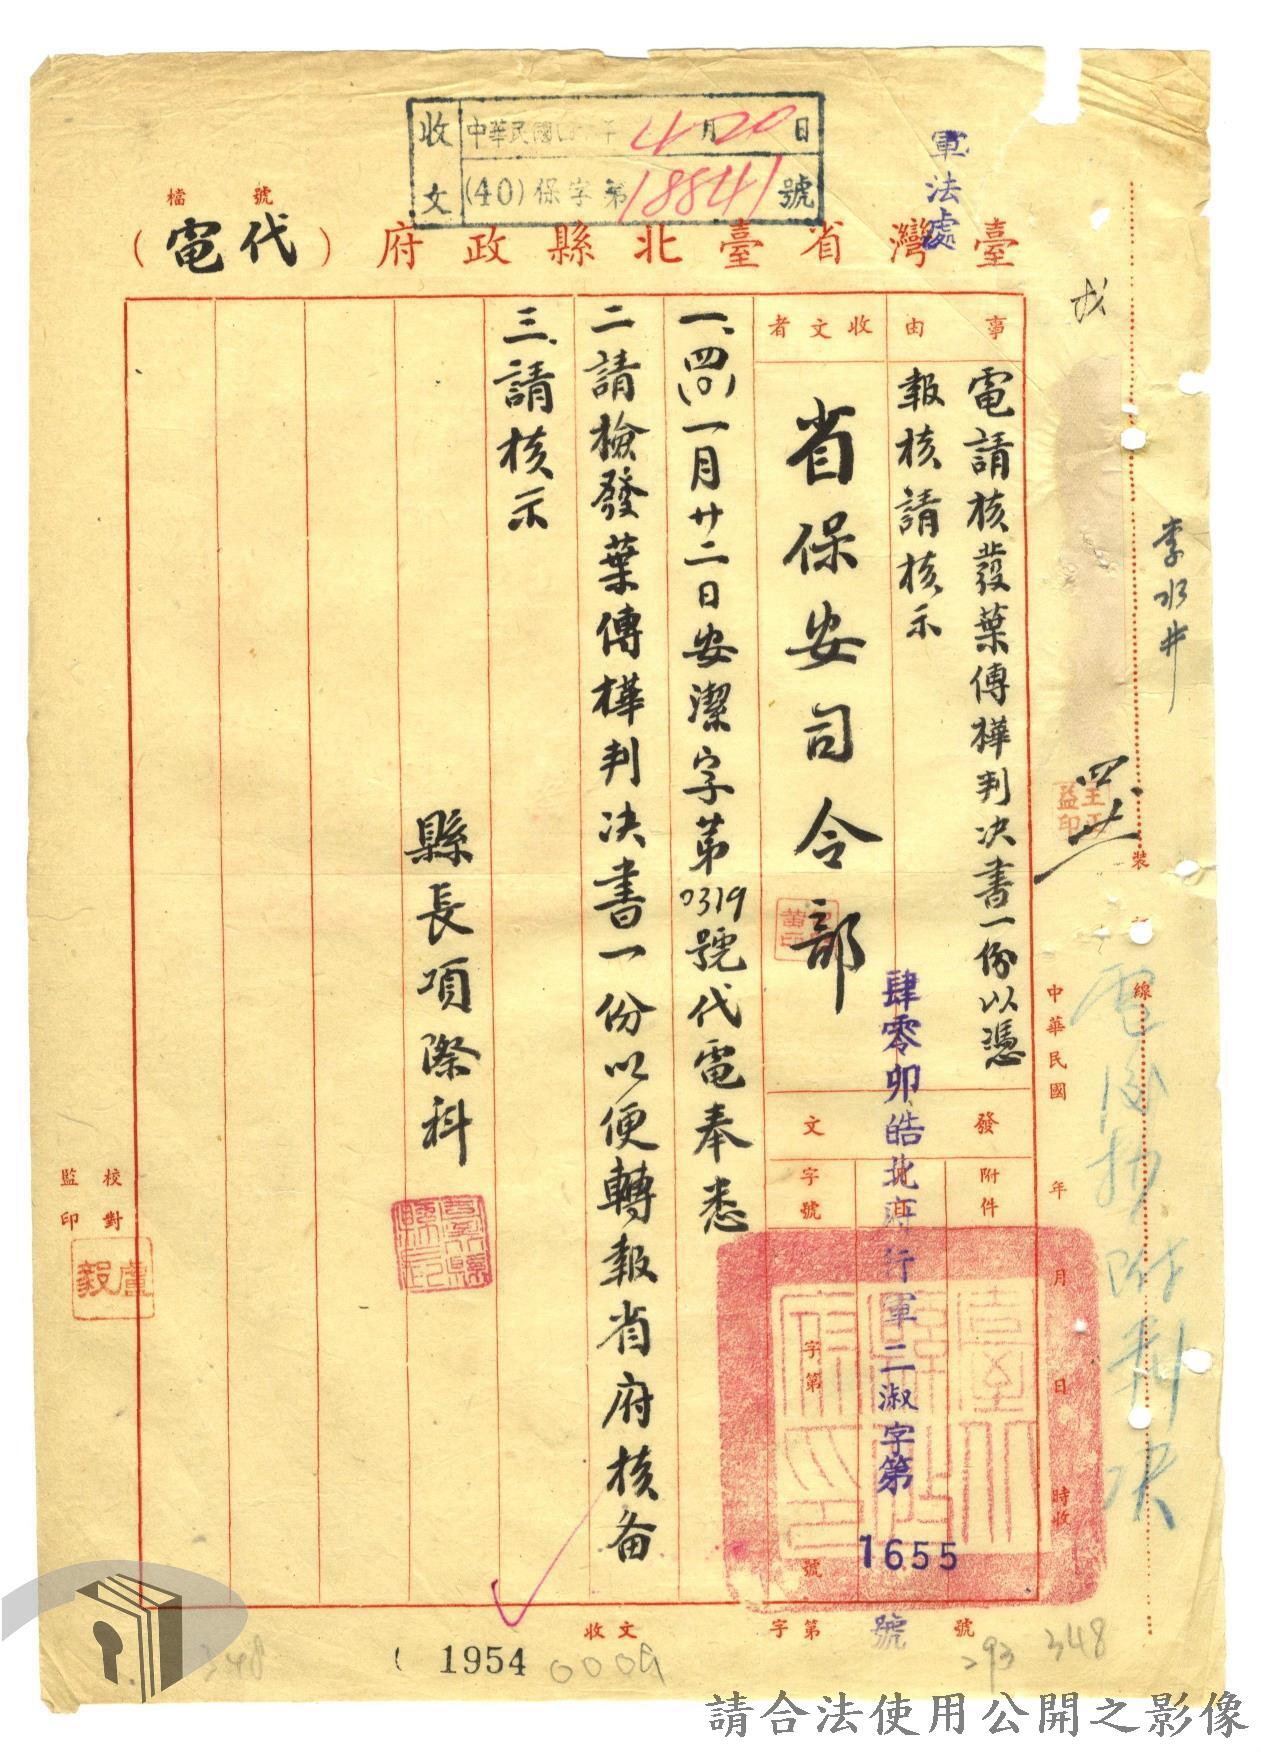 收文
中華民國 年4月20日
(40)保字第18841號
軍法處
檔 號
臺灣省臺北縣政府（代電）
事由
電請核發葉傳樺判決書一份以憑
報核請核示
收文者
省保安司令部
發文
附件
字號
字第 號
肆零卯皓北府行軍二淑字第
1655
號
一、四(〇)一月廿二日安潔字第0319號代電奉悉
二請檢發葉傳樺判決書一份以便轉報省府核备
三、請核示
縣長項際科
校對
監印
盧毅
李水井
裝
線
中華民國 年 月 日 時收
收文 字第 號
( 1954
0009
293
348
348
請合法使用公開之影像